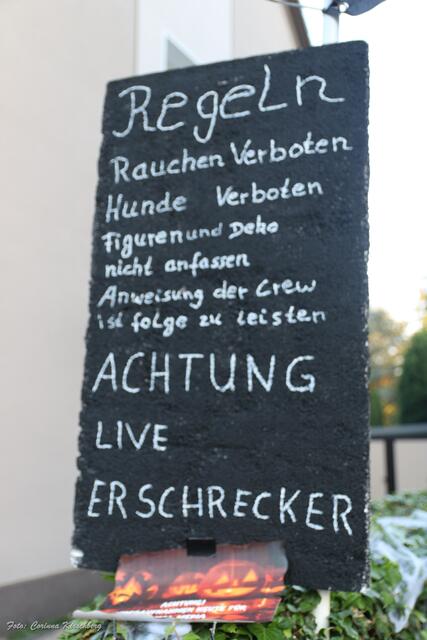 Regeln
Rauchen Verboten
Hunde Verboten
Figuren und Deko
nicht anfassen
Anweisung der Crew
ist folge zu leisten
ACHTUNG
LIVE
ERSCHRECKER
ACHTUNG!
HEUTE FÜR
MEDIA
Foto: Corinna